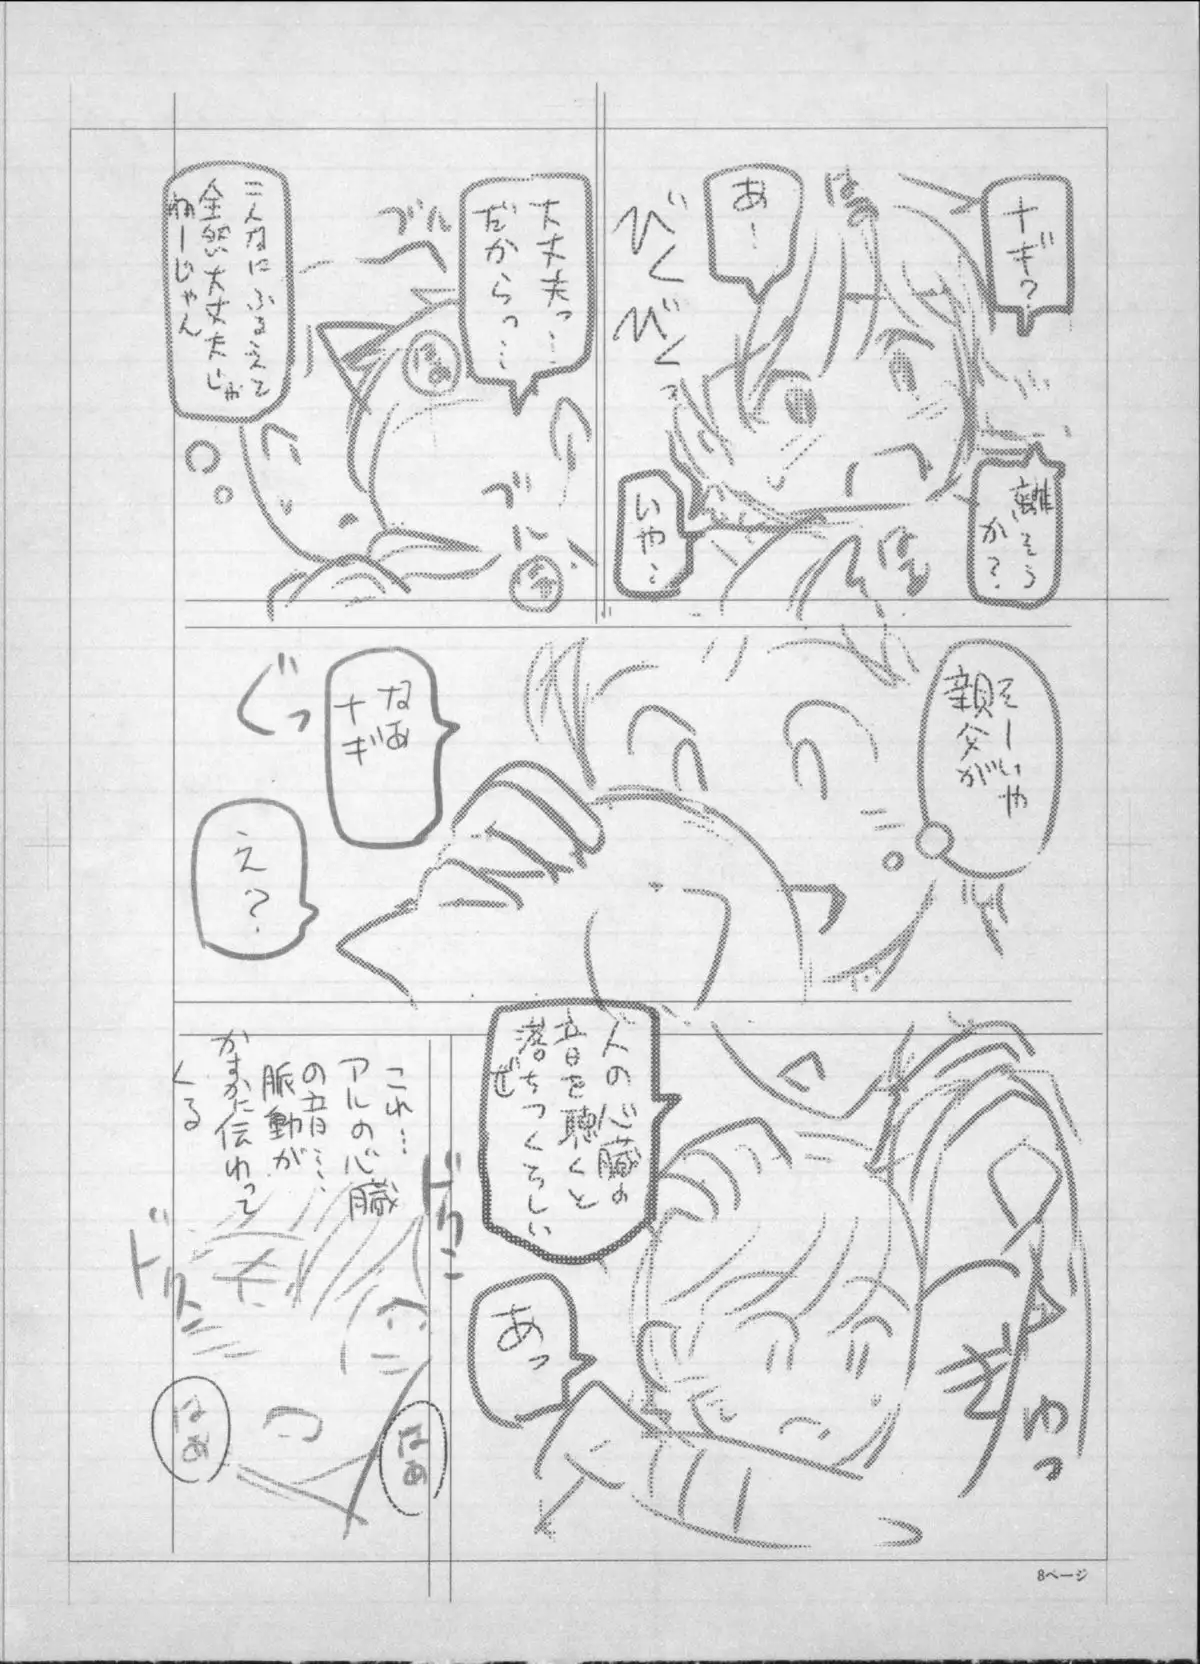 ナギ?
離そう
か?
あ…
いや…
びくびくっ
大丈夫っ…
だからっ…
ブル
ブル
はぁ
こんなにふるえて
全然大丈夫じゃ
ねーじゃん
そーいや
親父が
なあ
ナギ
ぐっ
え?
人の心臓の
音を聴くと
落ちつくらしい
ぜ
ぎゅっ
あっ
これ…
アルの心臓
の音…
脈動が
かすかに伝わって
くる
ドクン
ドクン
はぁ
はぁ
8ページ